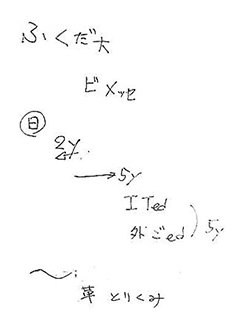 ふくだ大
ビメッセ
日
2y
5y
ITed
外ごed 5y
革 とりくみ